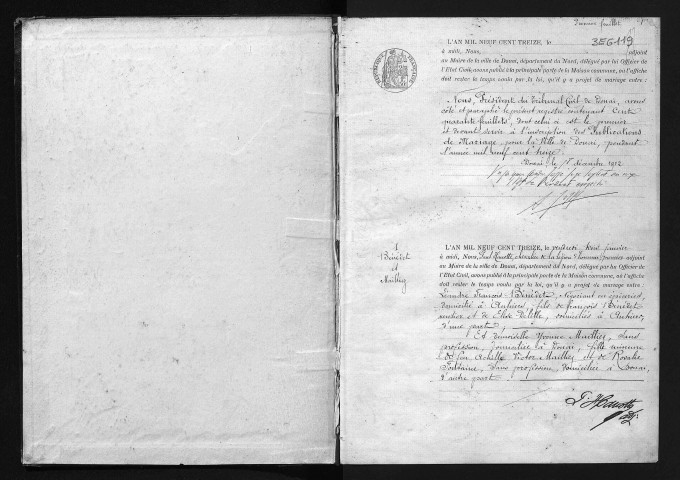 Premier feuillet
L'AN MIL NEUF CENT TREIZE, le 3E6119
à midi, Nous, adjoint
au Maire de la ville de Douai, département du Nord, délégué par lui Officier de
l'Etat Civil, avons publié à la principale porte de la Maison commune, où l'affiche
doit rester le temps voulu par la loi, qu'il y a projet de mariage entre :
Nous, Président du Tribunal Civil de Douai, avons
côté et paraphé le présent registre contenant Cent
quarante feuillets, dont celui ci est le premier
et devant servir à l'inscription des Publications
de Mariage, pour la Ville de Douai, pendant
l'année mil neuf cent treize.
Douai, le décembre 1912
1
Bénédet
et
Mailliez
L'AN MIL NEUF CENT TREIZE, le vendredi trois janvier
à midi, Nous, Paul chevalier de la Légion d'honneur, premier adjoint
au Maire de la ville de Douai, département du Nord, délégué par lui Officier de
l'Etat Civil, avons publié à la principale porte de la Maison commune, où l'affiche
doit rester le temps voulu par la loi, qu'il y a projet de mariage entre :
François Bénédet, négociant en épiceries,
domicilié à fils de François Bénédet
et de Elise domiciliés à
d'une part ;
Et demoiselle Yvonne Mailliez, sans
profession, domiciliée à Douai, fille mineure
de feu Achille Victor Mailliez et de Rosalie
Fontaine, sans profession, domiciliée à Douai,
d'autre part